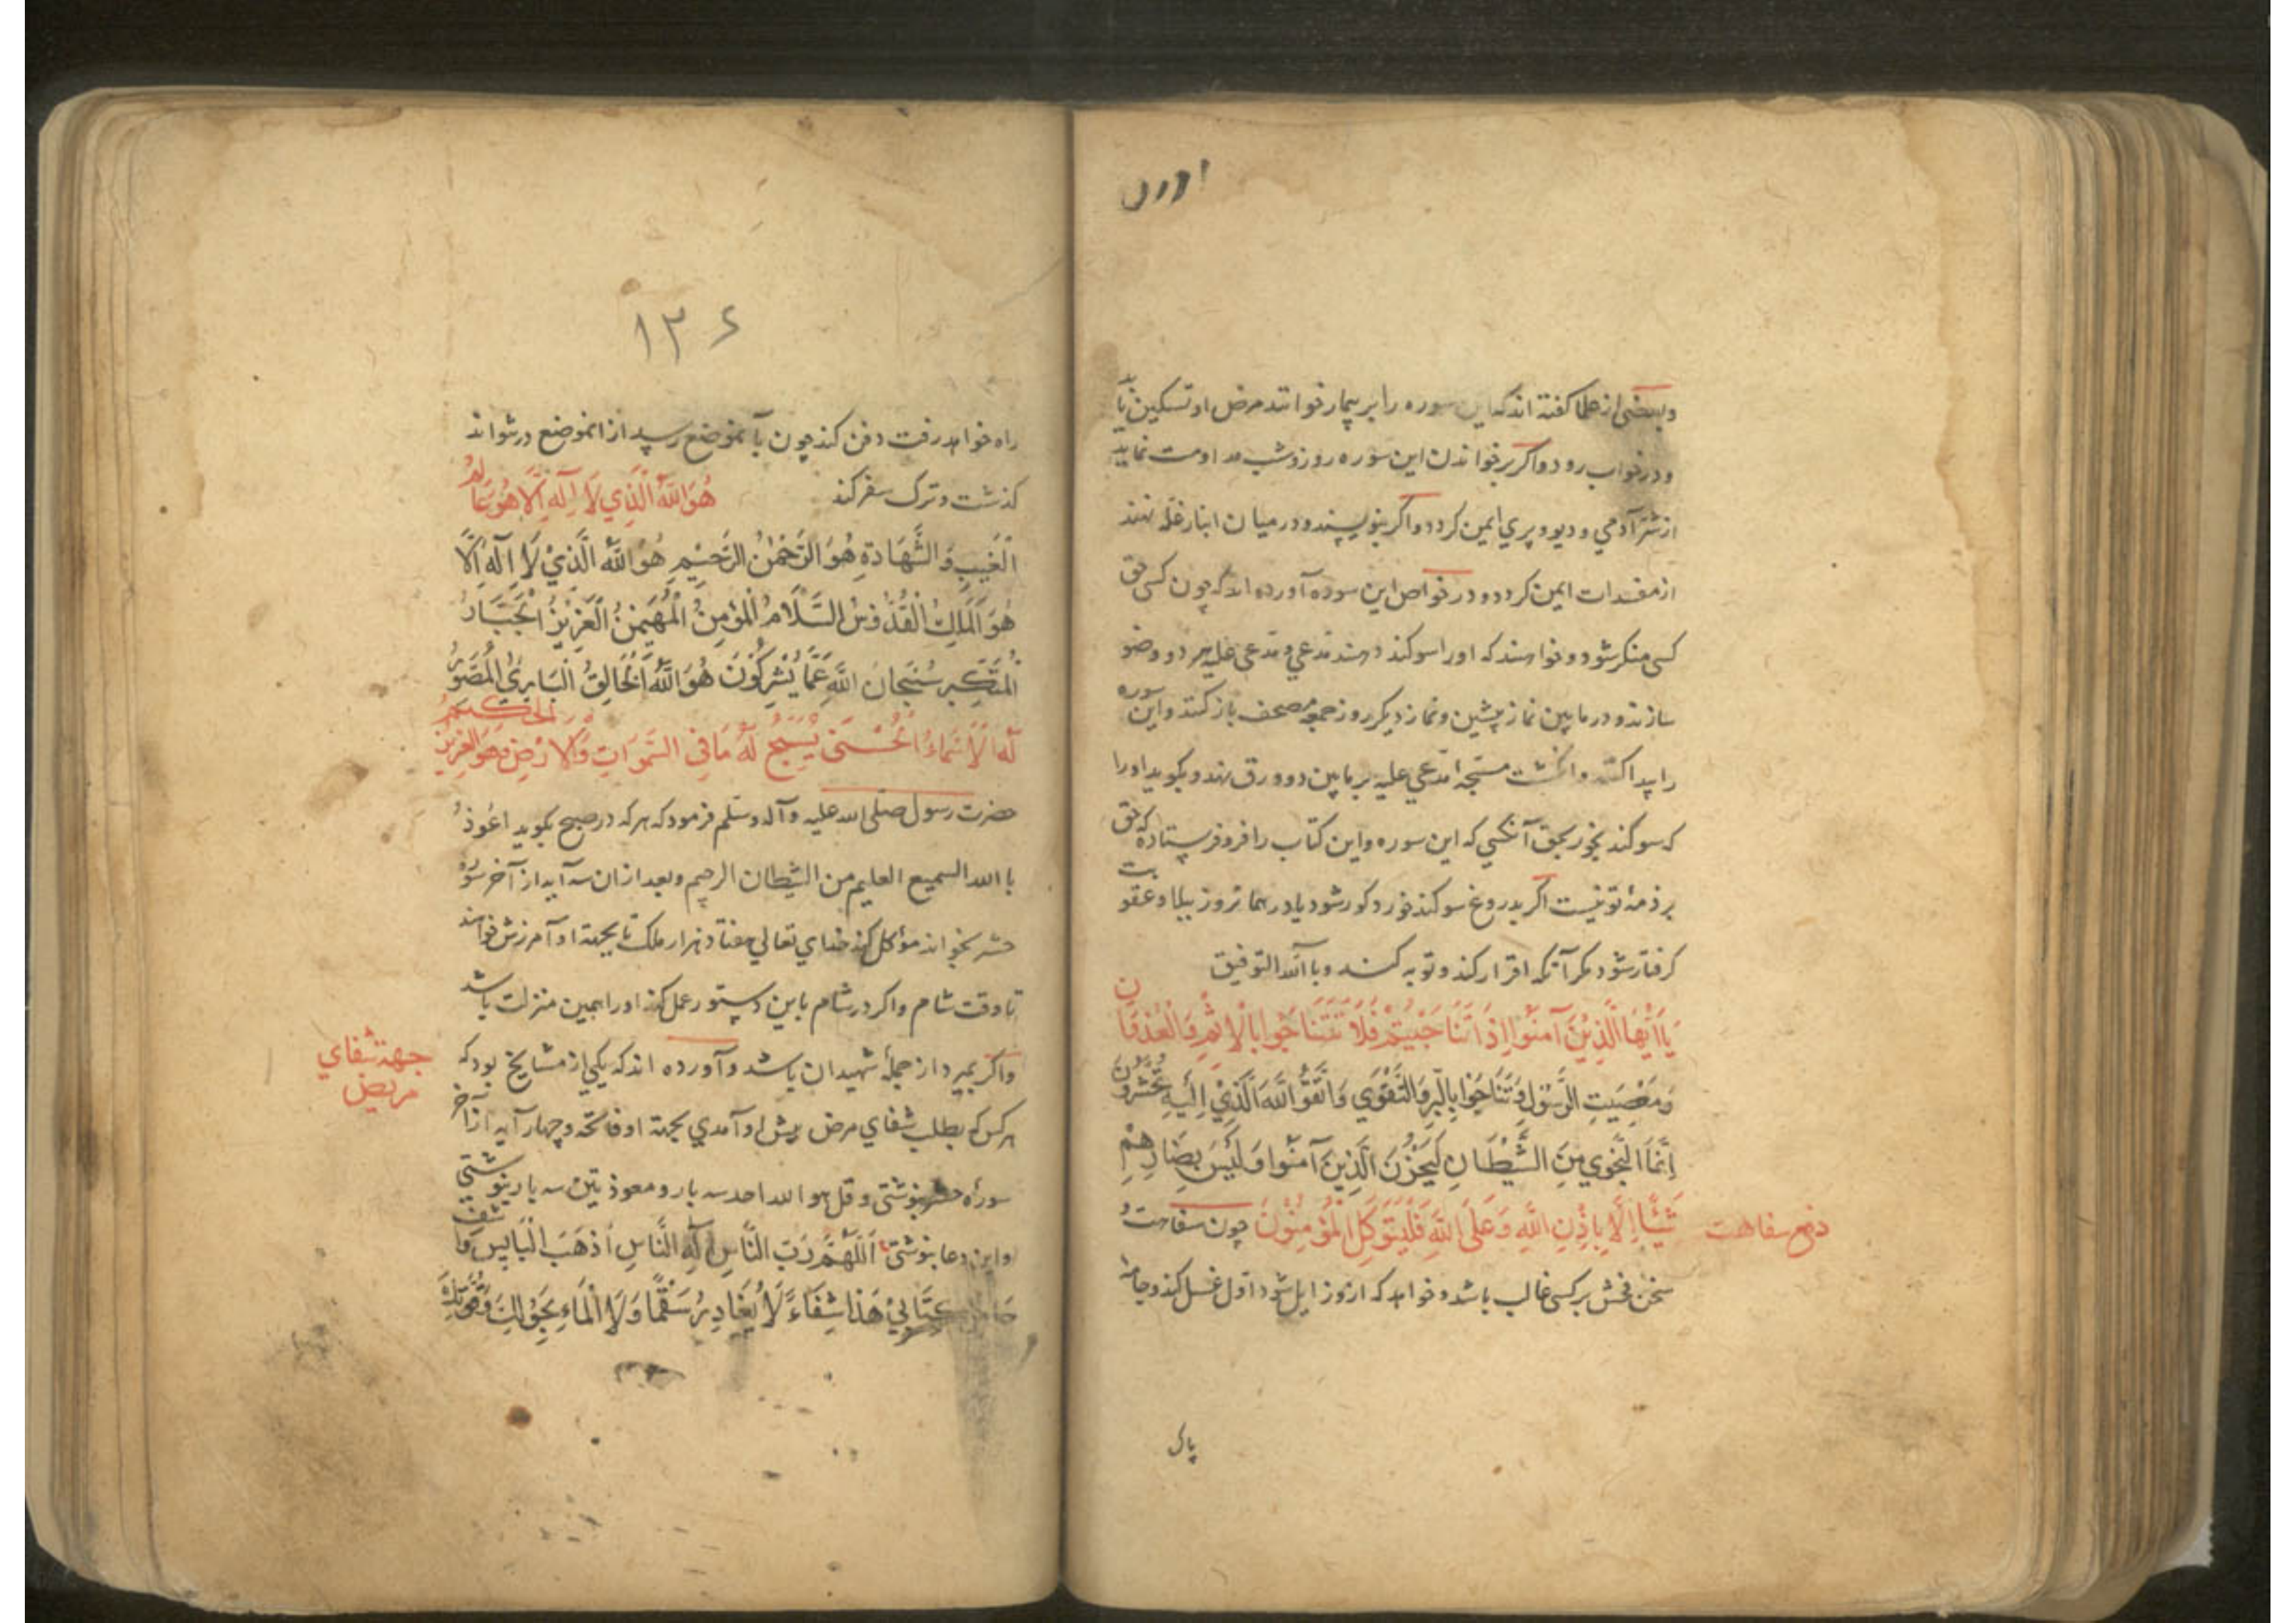 وبعضی از علما گفته اند که این سوره را بر بیمار خوانند مرض او تسکین یابد
و در خواب رود و اگر بر خواندن این سوره روز و شب مداومت نماید
از شر آدمي و ديو و پري ايمن کردد و اگر بنویسند و در میان انبار غله نهند
از مفسدات ایمن کردد و در خواص این سوره آورده اند که چون کسی حق
کسی منکر شود و خواهند که او را سوکند دهند مدعي و مدعی علیه هر دو وضو
سازند و در مابین نماز پیشین و نماز دیکر روز جمعه مصحف باز کنند و این سوره
را پیدا کنند و انکشت مسبحه مدعي علیه بر مابین دو ورق نهند و بکوید او را
که سوکند بخور بحق آنکسي که این سوره و این کتاب را فرو فرستاده که حق
بر ذمهٔ تو نیست اکر بدروغ سوکند خورد کور شود یا در همانروز ببلا و عقوبت
کرفتار شود مکر آنکه اقرار کند و توبه کند و باالله التوفیق
يَا اَيُّهَا الَّذِيْنَ آمَنُوا اِذَا تَنَاجَيْتُمْ فَلَا تَتَنَاجَوا بِالْاِثْمِ وَالْعُدْوَانِ
وَمَعْصِيَتِ الرَّسُوْلِ وَتَنَاجَوْا بِالْبِرِّ وَالتَّقْوَي وَاتَّقُوا اللّٰهَ الَّذِيْ اِلَيْهِ تُحْشَرُوْنَ
اِنَّمَا النَّجْوي مِنَ الشَّيْطَانِ لِيَحْزُنَ الَّذِينَ آمَنُوا وَلَيْسَ بِضَارِّهِمْ
شَيْئًا اِلَّا بِاِذْنِ اللّٰهِ وَعَلَى اللّٰهِ فَلْيَتَوَكَّلِ الْمُؤْمِنُوْنَ چون سفاهت و
دفع سفاهت
سخن فحش بر کسی غالب باشد و خواهد که ازو زایل شود اول غسل کند و جامهٔ
پاک
۱۳۶
راه خواهد رفت دفن کند چون بآنموضع رسید از انموضع در نتواند
کذشت و ترک سفر کند هُوَ اللّٰهُ الَّذِي لَا اِلٰهَ اِلَّا هُوَ عَالِمُ
الْغَيْبِ وَالشَّهَادَةِ هُوَ الرَّحْمٰنُ الرَّحِيْمِ هُوَ اللّٰهُ الَّذِيْ لَا اِلٰهَ اِلَّا
هُوَ الْمَلِكُ الْقُدُّوْسُ السَّلَامُ الْمُؤْمِنُ الْمُهَيْمِنُ الْعَزِيْزُ الْجَبَّارُ
الْمُتَكَبِّرُ سُبْحَانَ اللّٰهِ عَمَّا يُشْرِكُوْنَ هُوَ اللّٰهُ الْخَالِقُ الْبَارِيُ الْمُصَوِّرُ
لَهُ الْاَسْمَاءُ الْحُسْنَى يُسَبِّحُ لَهُ مَا فِي السَّمٰوَاتِ وَالْاَرْضِ وَهُوَ الْعَزِيْزُ الْحَكِيمُ
حضرت رسول صلی الله علیه و آله و سلم فرمود که هر که در صبح بکوید اعوذ
باالله السمیع العلیم من الشیطان الرجیم و بعد از ان سه آیه از آخر سوره
حشر بخواند مؤکل کند خدای تعالي هفتاد هزار ملک تا بجهة او آمرزش خواهند
تا وقت شام و اکر در شام باین دستور عمل کند او را همین منزلت باشد
و اکر بمیرد از جمله شهیدان باشد و آورده اند که یکی از مشایخ بود که
جهة شفاي
مریض
هر کس که بطلب شفاي مرض پیش او آمدي بجهة او فاتحه و چهار آیه از آخر
سورۀ حشر بنوشتی و قل هو الله احد سه بار و معوذتین سه بار بنوشتی
و این دعا بنوشتی اَللّٰهُمَّ رَبَّ النَّاسِ اِلٰهَ النَّاسِ اَذْهَبَ الْبَاسِ وَاشْفِ
كِتَابِيْ هَذَا شِفَاءً لَا يُغَادِرُ سَقْمًا وَلَا اَلَمًا بِحَوْلِكَ وَقُوَّتِكَ